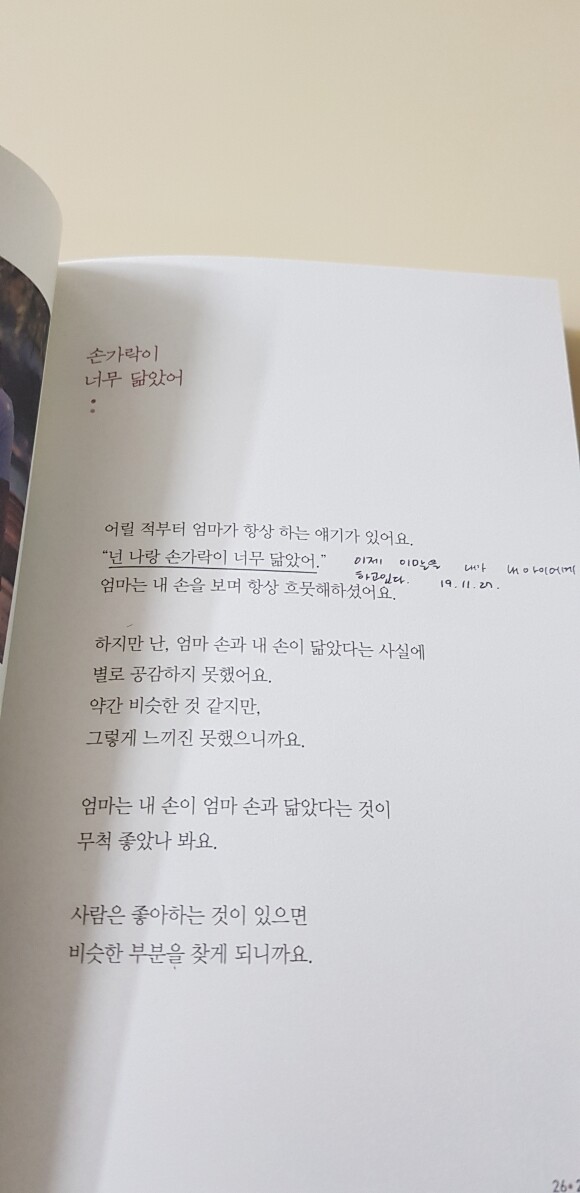 손가락이
너무 닮았어
어릴 적부터 엄마가 항상 하는 얘기가 있어요.
“넌 나랑 손가락이 너무 닮았어.”
이제 이말을 내가 내 아이에게
하고있다. 19.11.27.
엄마는 내 손을 보며 항상 흐뭇해하셨어요.
하지만 난, 엄마 손과 내 손이 닮았다는 사실에
별로 공감하지 못했어요.
약간 비슷한 것 같지만,
그렇게 느끼진 못했으니까요.
엄마는 내 손이 엄마 손과 닮았다는 것이
무척 좋았나 봐요.
사람은 좋아하는 것이 있으면
비슷한 부분을 찾게 되니까요.